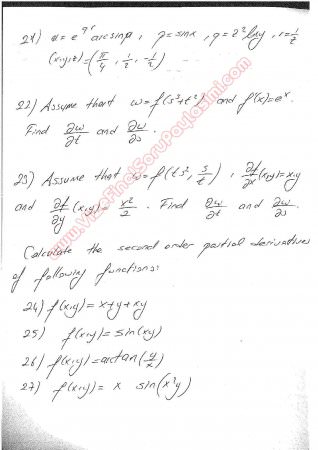 21) u = e^{qr} arcsinp, p = sinx, q = z² lny, r = 1/z
(x,y,z) = (π/4, 1/2, -1/2)
22) Assume that w = f(s³+t²) and f'(x) = e^x.
Find ∂w/∂t and ∂w/∂s.
23) Assume that w = f(ts², s/t), ∂f/∂x (x,y) = xy
and ∂f/∂y (x,y) = x²/2. Find ∂w/∂t and ∂w/∂s.
Calculate the second order partial derivatives
of following functions:
24) f(x,y) = x+y+xy
25) f(x,y) = sin(xy)
26) f(x,y) = arctan(y/x)
27) f(x,y) = x sin(x²y)
www.VizeFinalSoruPaylasimi.com